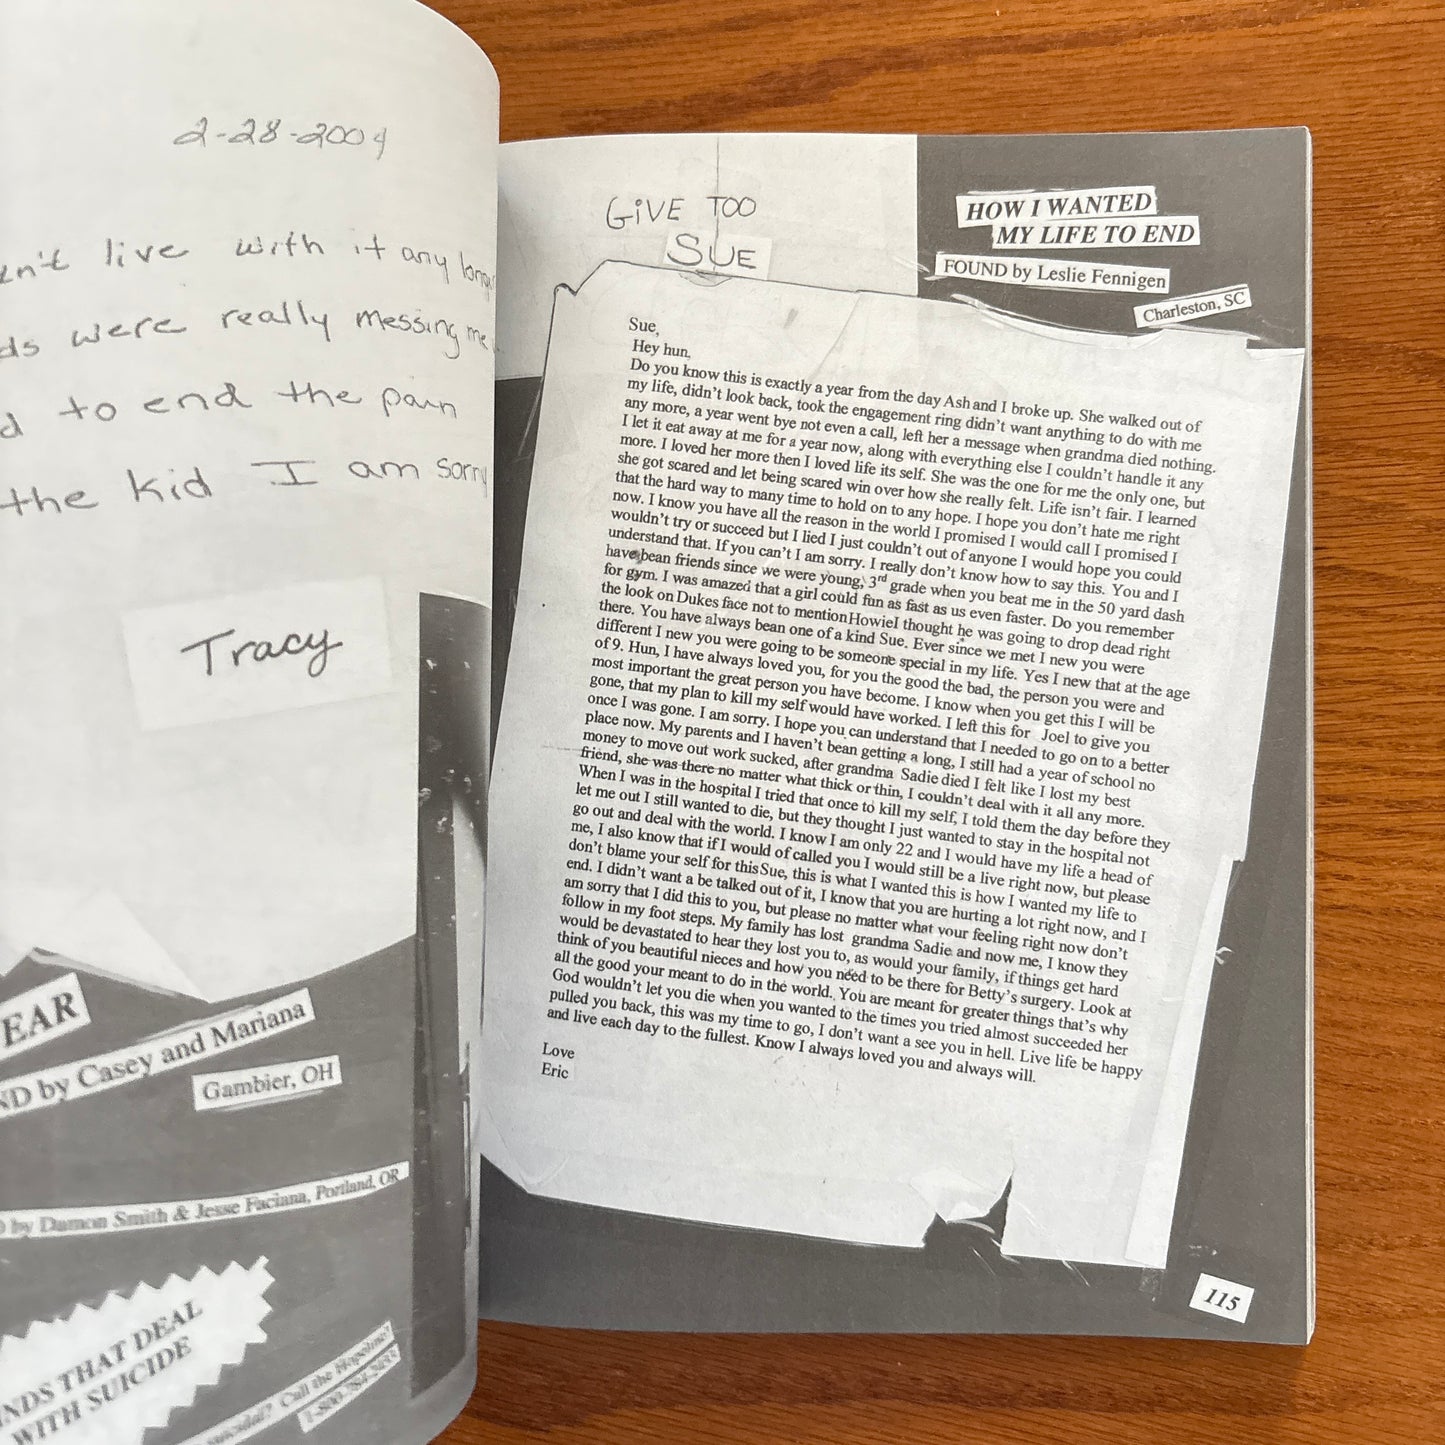 2-28-2004
live with it any
were really messing me
to end the pain
the kid I am sorry
Tracy
EAR
by Casey and Mariana
Gambier, OH
by Damon Smith & Jesse Faciana, Portland, OR
THAT DEAL
WITH SUICIDE
Call the Hopeline!
GiVE TOO
SUE
HOW I WANTED
MY LIFE TO END
FOUND by Leslie Fennigen
Charleston, SC
Sue,
Hey hun,
Do you know this is exactly a year from the day Ash and I broke up. She walked out of
my life, didn't look back, took the engagement ring didn't want anything to do with me
any more, a year went bye not even a call, left her a message when grandma died nothing.
I let it eat away at me for a year now, along with everything else I couldn't handle it any
more. I loved her more then I loved life its self. She was the one for me the only one, but
she got scared and let being scared win over how she really felt. Life isn't fair. I learned
that the hard way to many time to hold on to any hope. I hope you don't hate me right
now. I know you have all the reason in the world I promised I would call I promised I
wouldn't try or succeed but I lied I just couldn't out of anyone I would hope you could
understand that. If you can't I am sorry. I really don't know how to say this. You and I
have bean friends since we were young, 3rd grade when you beat me in the 50 yard dash
for gym. I was amazed that a girl could fun as fast as us even faster. Do you remember
the look on Dukes face not to mention HowieI thought he was going to drop dead right
there. You have always bean one of a kind Sue. Ever since we met I new you were
different I new you were going to be someone special in my life. Yes I new that at the age
of 9. Hun, I have always loved you, for you the good the bad, the person you were and
most important the great person you have become. I know when you get this I will be
gone, that my plan to kill my self would have worked. I left this for Joel to give you
once I was gone. I am sorry. I hope you can understand that I needed to go on to a better
place now. My parents and I haven't bean getting a long, I still had a year of school no
money to move out work sucked, after grandma Sadie died I felt like I lost my best
friend, she was there no matter what thick or thin, I couldn't deal with it all any more.
When I was in the hospital I tried that once to kill my self, I told them the day before they
let me out I still wanted to die, but they thought I just wanted to stay in the hospital not
go out and deal with the world. I know I am only 22 and I would have my life a head of
me, I also know that if I would of called you I would still be a live right now, but please
don't blame your self for this Sue, this is what I wanted this is how I wanted my life to
end. I didn't want a be talked out of it, I know that you are hurting a lot right now, and I
am sorry that I did this to you, but please no matter what your feeling right now don't
follow in my foot steps. My family has lost grandma Sadie and now me, I know they
would be devastated to hear they lost you to, as would your family, if things get hard
think of you beautiful nieces and how you need to be there for Betty's surgery. Look at
all the good your meant to do in the world. You are meant for greater things that's why
God wouldn't let you die when you wanted to the times you tried almost succeeded her
pulled you back, this was my time to go, I don't want a see you in hell. Live life be happy
and live each day to the fullest. Know I always loved you and always will.
Love
Eric
115